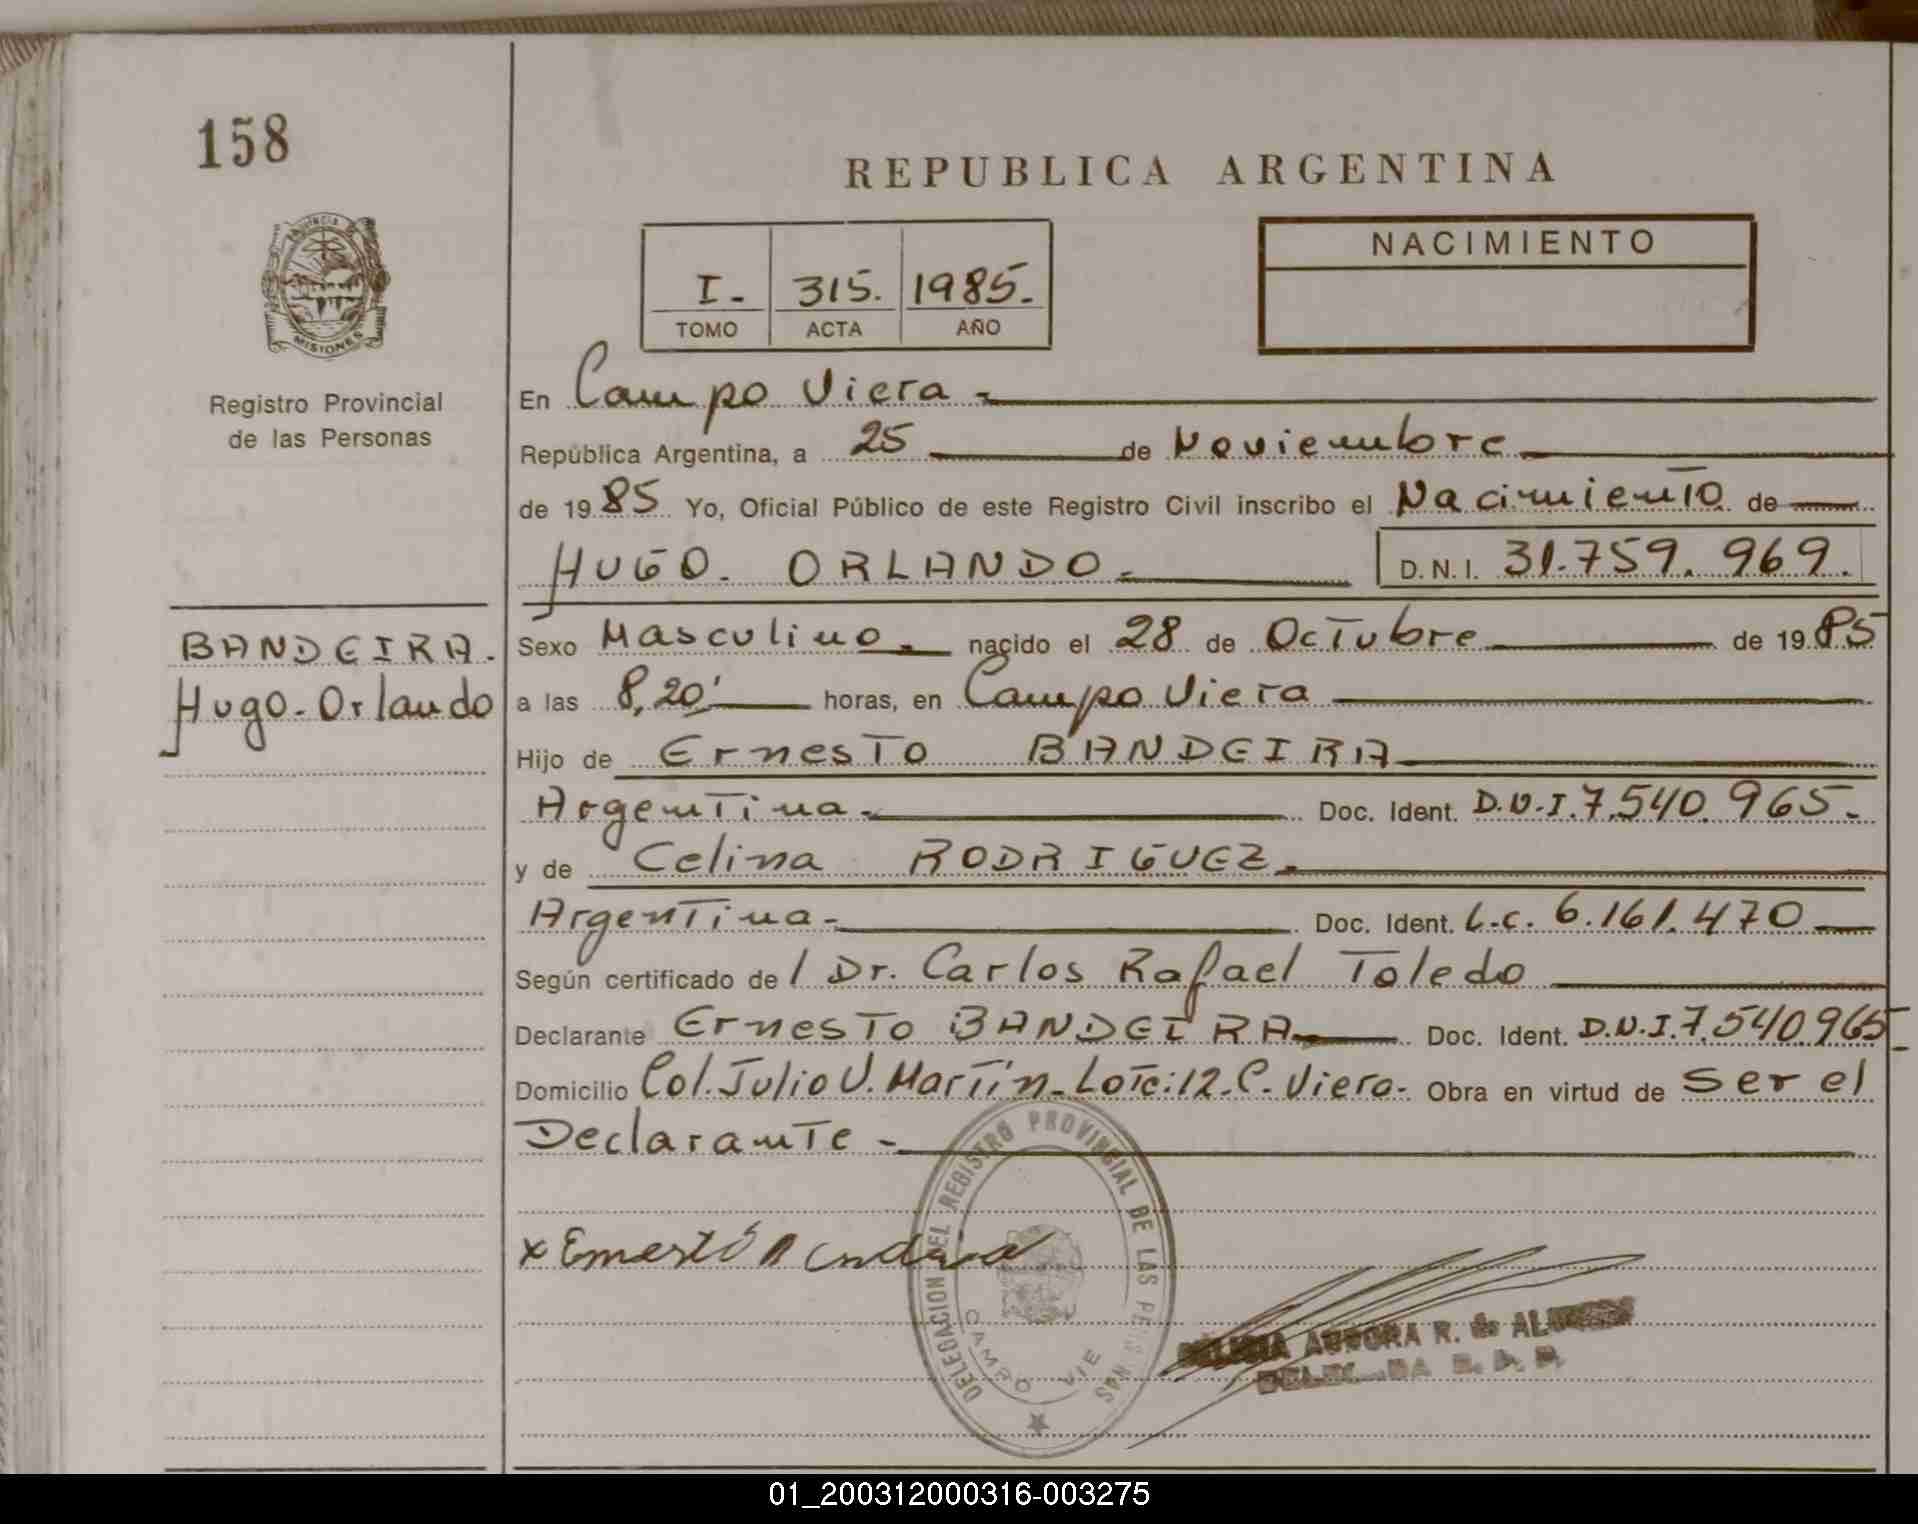 158
REPUBLICA ARGENTINA
PROVINCIA DE
MISIONES
Registro Provincial
de las Personas
I. 315. 1985.
TOMO ACTA AÑO
NACIMIENTO
En Campo Viera
República Argentina, a 25 de Noviembre
de 19 85 Yo, Oficial Público de este Registro Civil inscribo el Nacimiento de
HUGO. ORLANDO. D.N.I. 31.759.969.
BANDEIRA.
Hugo. Orlando
Sexo Masculino. nacido el 28 de Octubre de 19 85
a las 8,20' horas, en Campo Viera
Hijo de Ernesto BANDEIRA
Argentina. Doc. Ident. D.N.I. 7.540.965.
y de Celina RODRIGUEZ.
Argentina. Doc. Ident. L.C. 6.161.470
Según certificado de l Dr. Carlos Rafael Toledo
Declarante Ernesto BANDEIRA Doc. Ident. D.N.I. 7.540.965
Domicilio Col. Julio U. Martín. Lote: 12. C. Viera. Obra en virtud de Ser el
Declarante
DELEGACION DEL REGISTRO PROVINCIAL DE LAS PERSONAS
CAMPO VIE
x Ernesto Bandeira
AURORA R. de
01_200312000316-003275